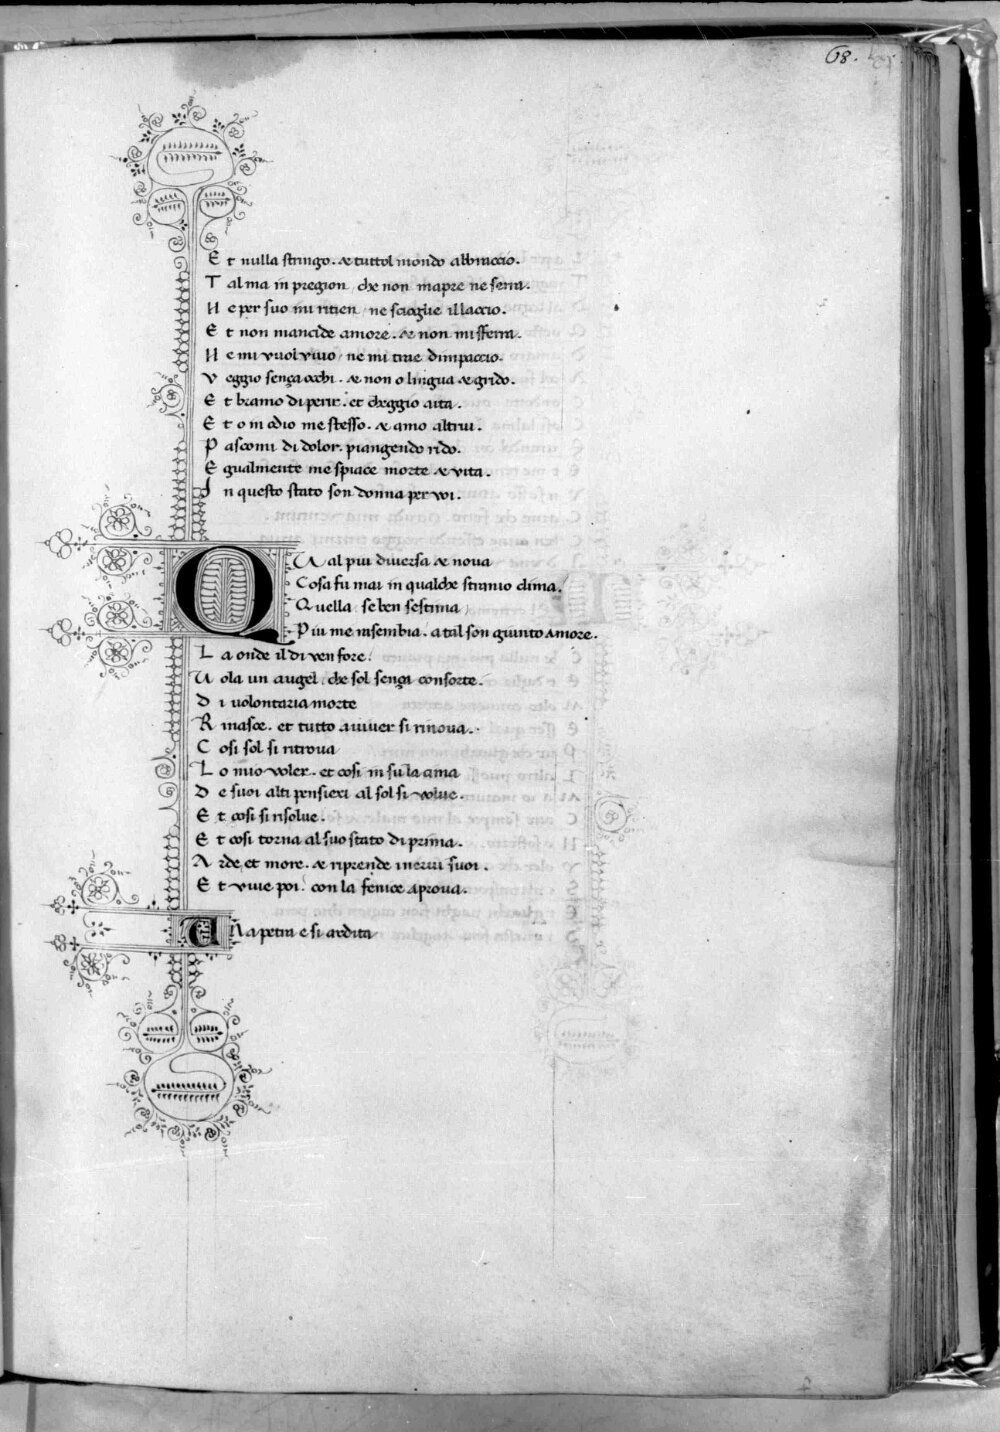 68.
Et nulla stringo. & tuttol mondo abbraccio.
Tal ma in pregion, che non mapre ne serra.
Ne per suo mi ritien, ne scioglie il laccio.
Et non mancide amore. & non mi sferra.
Ne mi vuol vivo, ne mi trae dimpaccio.
Veggio senza occhi. & non o lingua & grido.
Et bramo di perir. et cheggio aita.
Et o in odio me stesso. & amo altrui.
Pascomi di dolor. piangendo rido.
Egualmente me spiace morte & vita.
In questo stato son donna per voi.
QUal piu diversa & nova
Cosa fu mai in qualche stranio clima,
Quella se ben sestima,
Piu me risembia. a tal son giunto Amore.
La onde il di ven fore.
Uola un augel, che sol senza consorte.
Di volontaria morte
Rinasce. et tutto a viver si rinova.
Cosi sol si ritrova
Lo mio voler. et cosi in su la cima
De suoi alti pensieri al sol si volve.
Et cosi si risolve.
Et cosi torna al suo stato di prima.
Arde, et more. & riprende i nervi suoi.
Et vive poi. con la fenice a prova.
UNa petra e si ardita